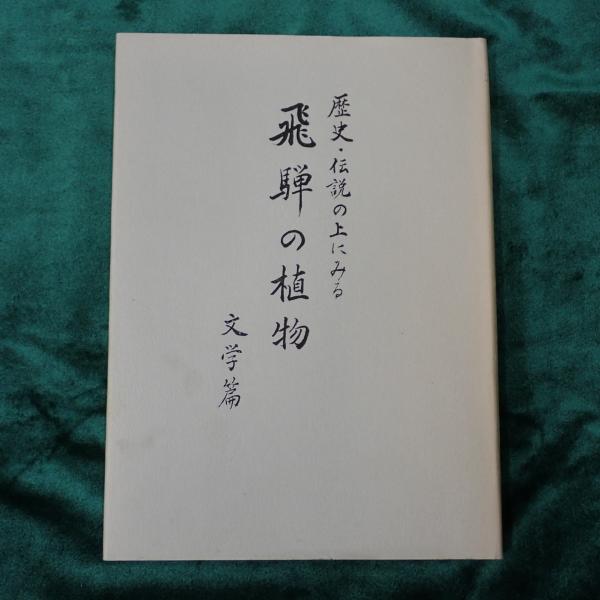 歴史・伝説の上にみる
飛騨の植物
文学篇